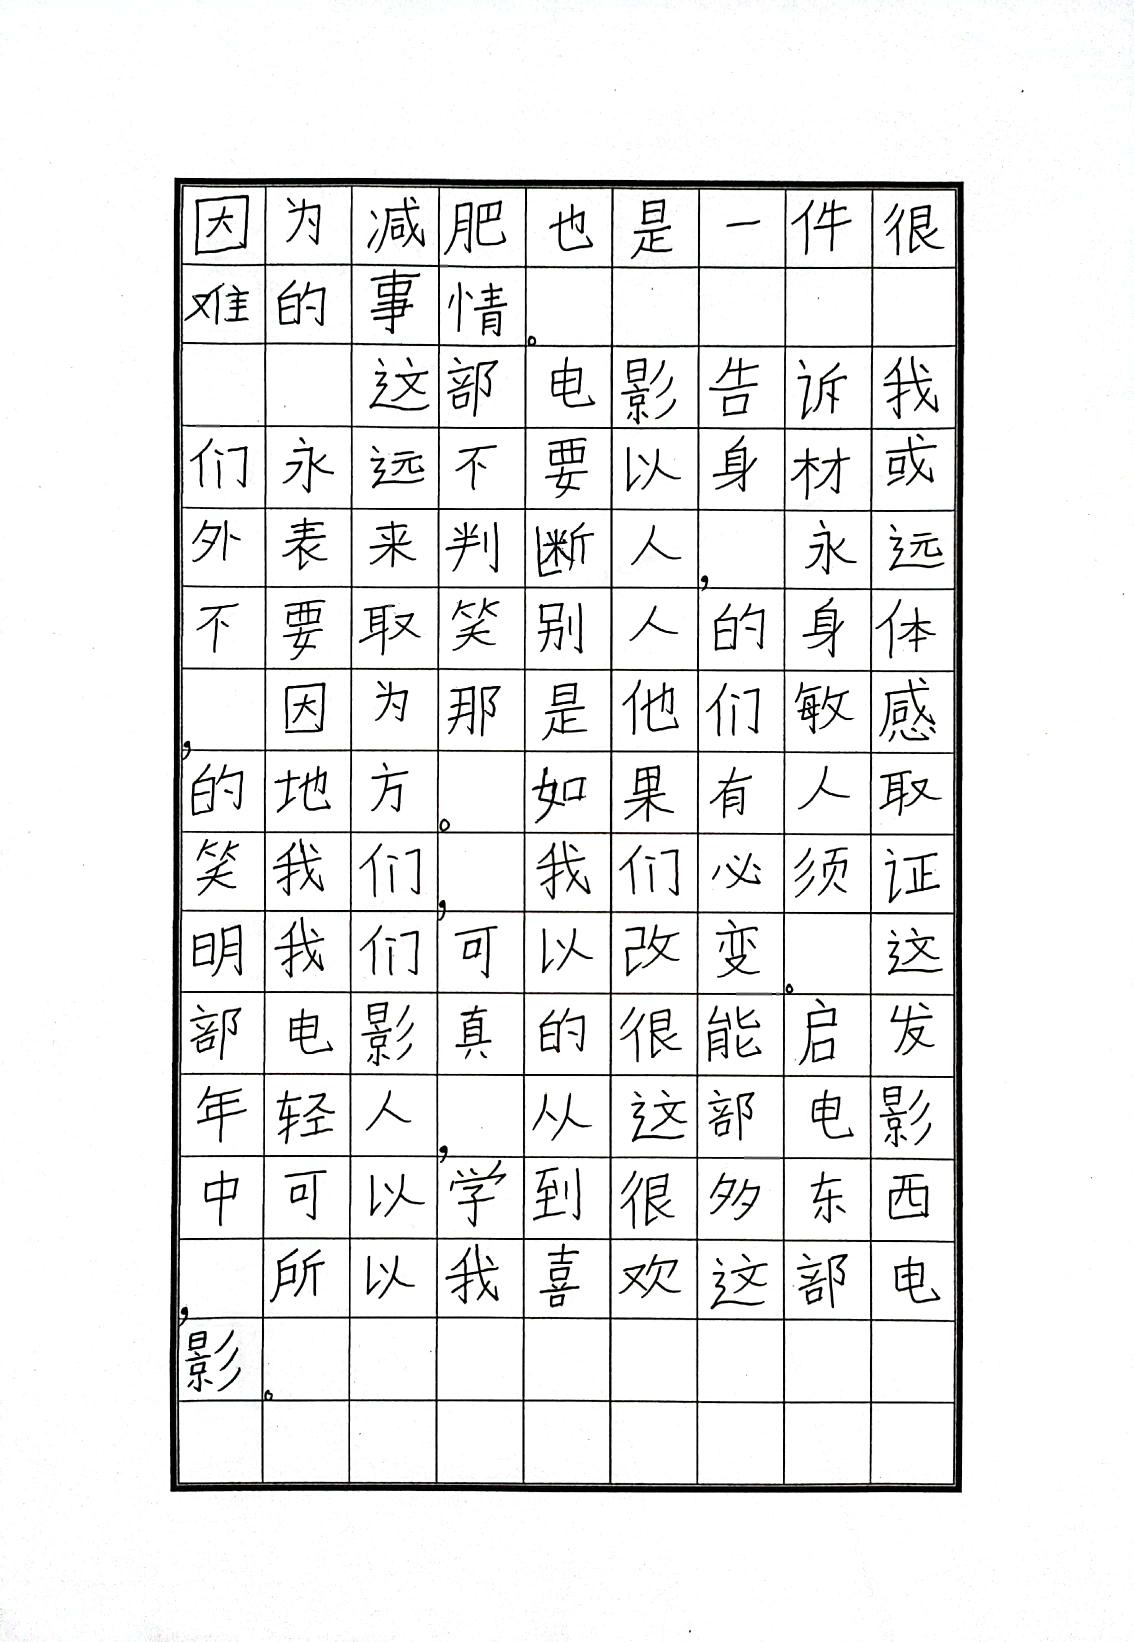 因为减肥也是一件很
难的事情。
这部电影告诉我
们永远不要以身材或
外表来判断人，永远
不要取笑别人的身体
，因为那是他们敏感
的地方。如果有人取
笑我们，我们必须证
明我们可以改变。这
部电影真的很能启发
年轻人，从这部电影
中可以学到很多东西
，所以我喜欢这部电
影。